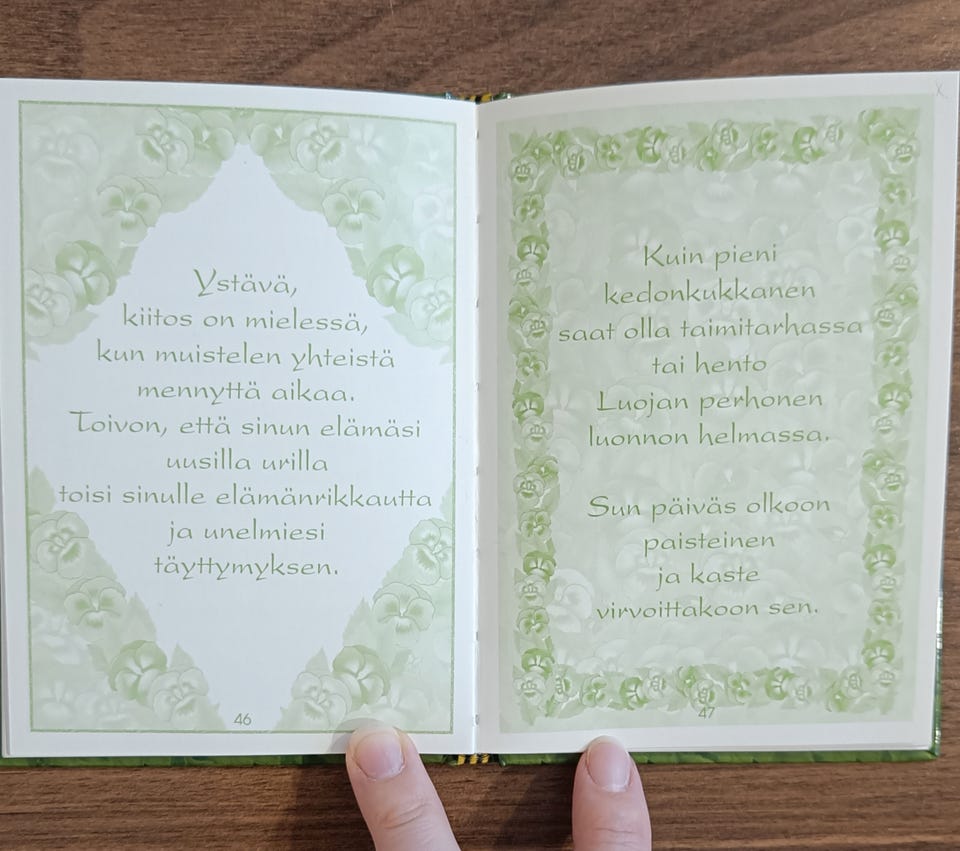 Ystävä,
kiitos on mielessä,
kun muistelen yhteistä
mennyttä aikaa.
Toivon, että sinun elämäsi
uusilla urilla
toisi sinulle elämänrikkautta
ja unelmiesi
täyttymyksen.
46
Kuin pieni
kedonkukkanen
saat olla taimitarhassa
tai hento
Luojan perhonen
luonnon helmassa.
Sun päiväs olkoon
paisteinen
ja kaste
virvoittakoon sen.
47